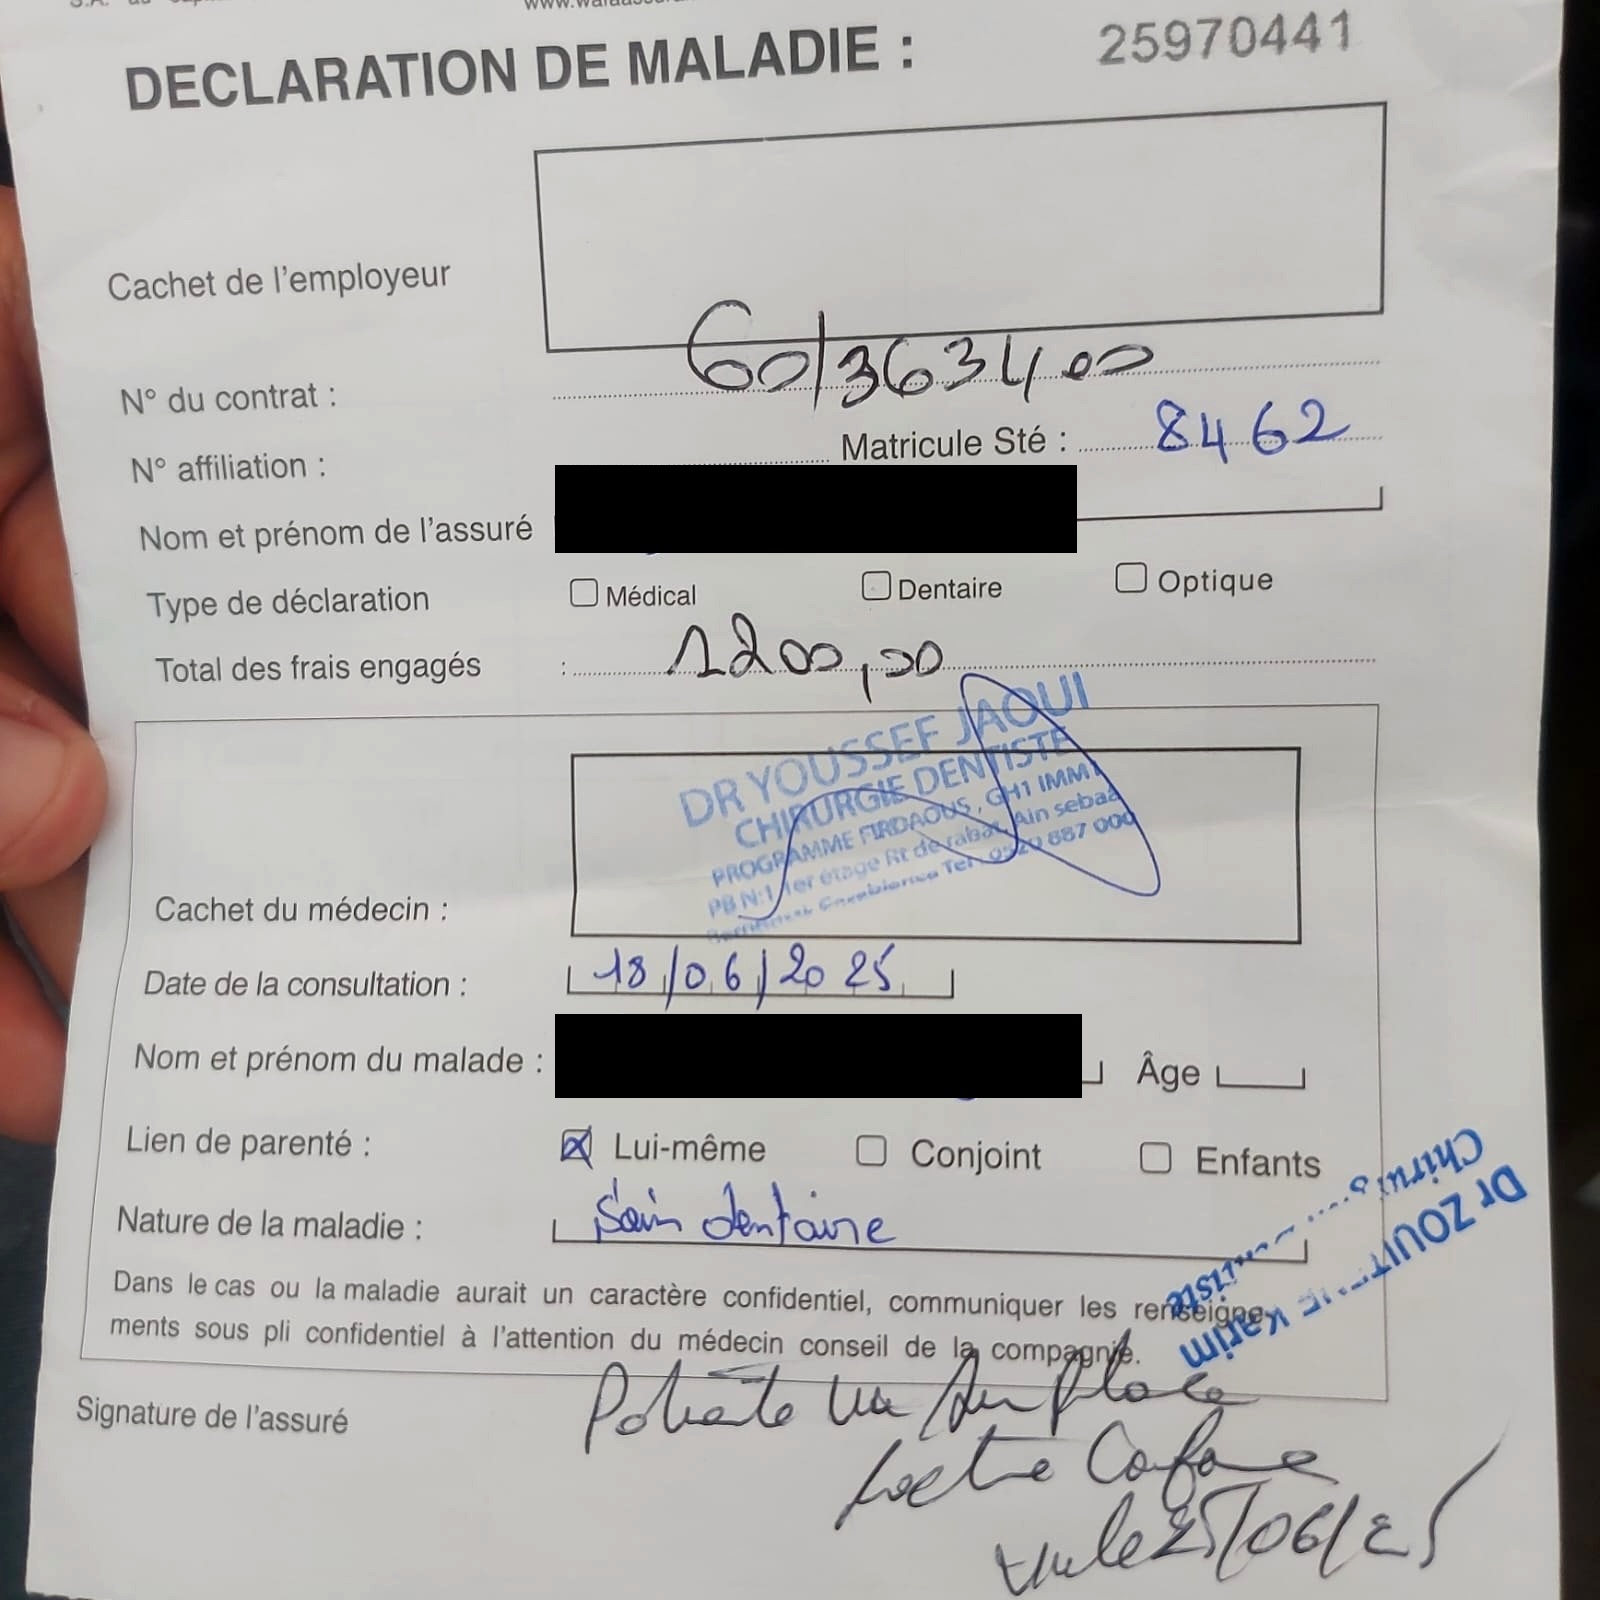 DECLARATION DE MALADIE :
25970441
Cachet de l'employeur
N° du contrat : 60/3634 00
N° affiliation : Matricule Sté : 8462
Nom et prénom de l'assuré
Type de déclaration Médical Dentaire Optique
Total des frais engagés : 1200,00
DR YOUSSEF JAOUI
CHIRURGIE DENTISTE
PROGRAMME FIRDAOUS, GH1 IMM
PB N:1 1er étage Rt de rabat, Ain sebaa
Casablanca Tel: 0520 887 000
Cachet du médecin :
Date de la consultation : 18/06/2025
Nom et prénom du malade : Âge
Lien de parenté : Lui-même Conjoint Enfants
Nature de la maladie : Soin dentaire
Dans le cas ou la maladie aurait un caractère confidentiel, communiquer les renseigne-
ments sous pli confidentiel à l'attention du médecin conseil de la compagnie.
Dr Karim
Signature de l'assuré
vu le 25/06/25